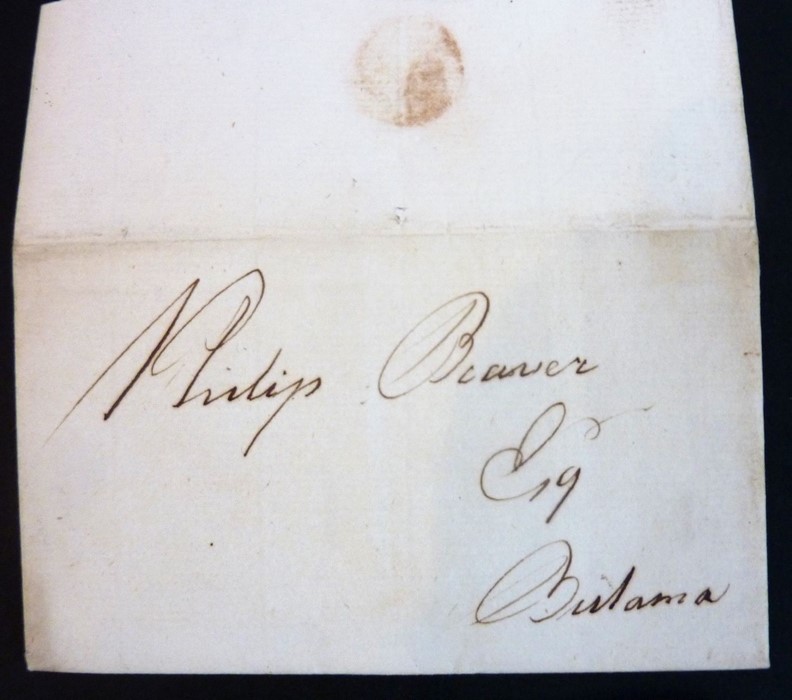 Philip Beaver
Esq
Bulama